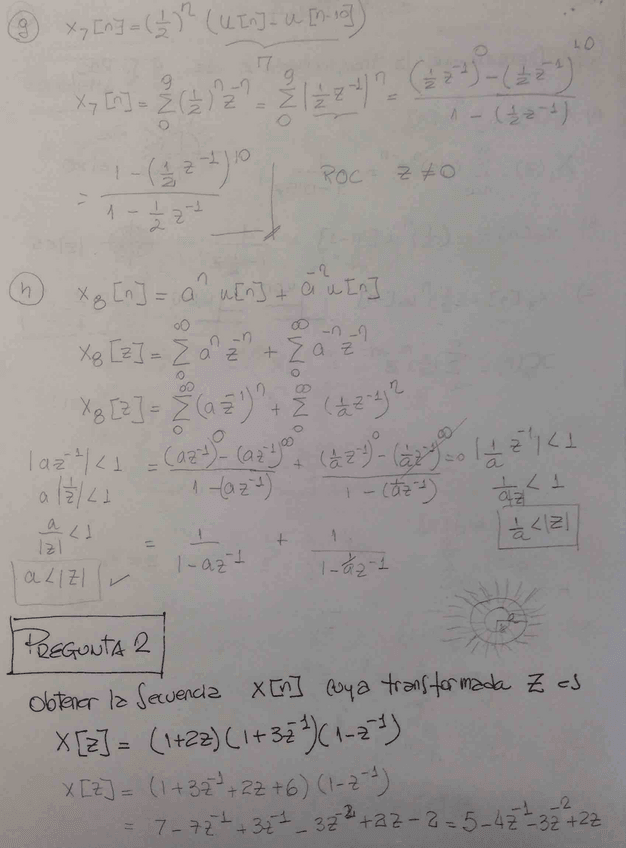 g x₇[n] = (1/2)ⁿ (u[n] - u[n-10])
x₇[n] = Σ₀⁹ (1/2)ⁿ z⁻ⁿ = Σ₀⁹ (1/2 z⁻¹)ⁿ = ((1/2 z⁻¹)⁰ - (1/2 z⁻¹)¹⁰) / (1 - (1/2 z⁻¹))
= (1 - (1/2 z⁻¹)¹⁰) / (1 - 1/2 z⁻¹) ROC z ≠ 0
h x₈[n] = aⁿ u[n] + a⁻ⁿ u[n]
x₈[z] = Σ₀^∞ aⁿ z⁻ⁿ + Σ₀^∞ a⁻ⁿ z⁻ⁿ
x₈[z] = Σ₀^∞ (a z⁻¹)ⁿ + Σ₀^∞ (1/a z⁻¹)ⁿ
|az⁻¹| < 1 = ((az⁻¹)⁰ - (az⁻¹)^∞) / (1 - (az⁻¹)) + ((1/a z⁻¹)⁰ - (1/a z⁻¹)^∞ = 0) / (1 - (1/a z⁻¹)) |1/a z⁻¹| < 1
a |1/z| < 1 1/a|z| < 1
a/|z| < 1 = 1/(1 - az⁻¹) + 1/(1 - 1/a z⁻¹) 1/a < |z|
a < |z| ✓
PREGUNTA 2
Obtener la secuencia X[n] cuya transformada Z es
X[z] = (1+2z)(1+3z⁻¹)(1-z⁻¹)
X[z] = (1+3z⁻¹+2z+6)(1-z⁻¹)
= 7 - 7z⁻¹ + 3z⁻¹ - 3z⁻² + 2z - 2 = 5 - 4z⁻¹ - 3z⁻² + 2z